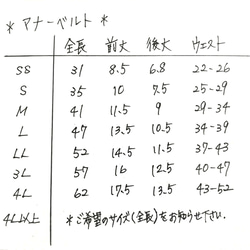 * マナーベルト *
全長 前丈 後丈 ウエスト
SS 31 8.5 6.8 22-26
S 35 10 7.5 25-29
M 41 11.5 9 29-34
L 47 13.5 10.5 34-39
LL 52 14.5 11.5 37-43
3L 57 16 12.5 40-47
4L 62 17.5 13.5 43-52
4L以上 *ご希望のサイズ(全長)をお知らせ下さい。